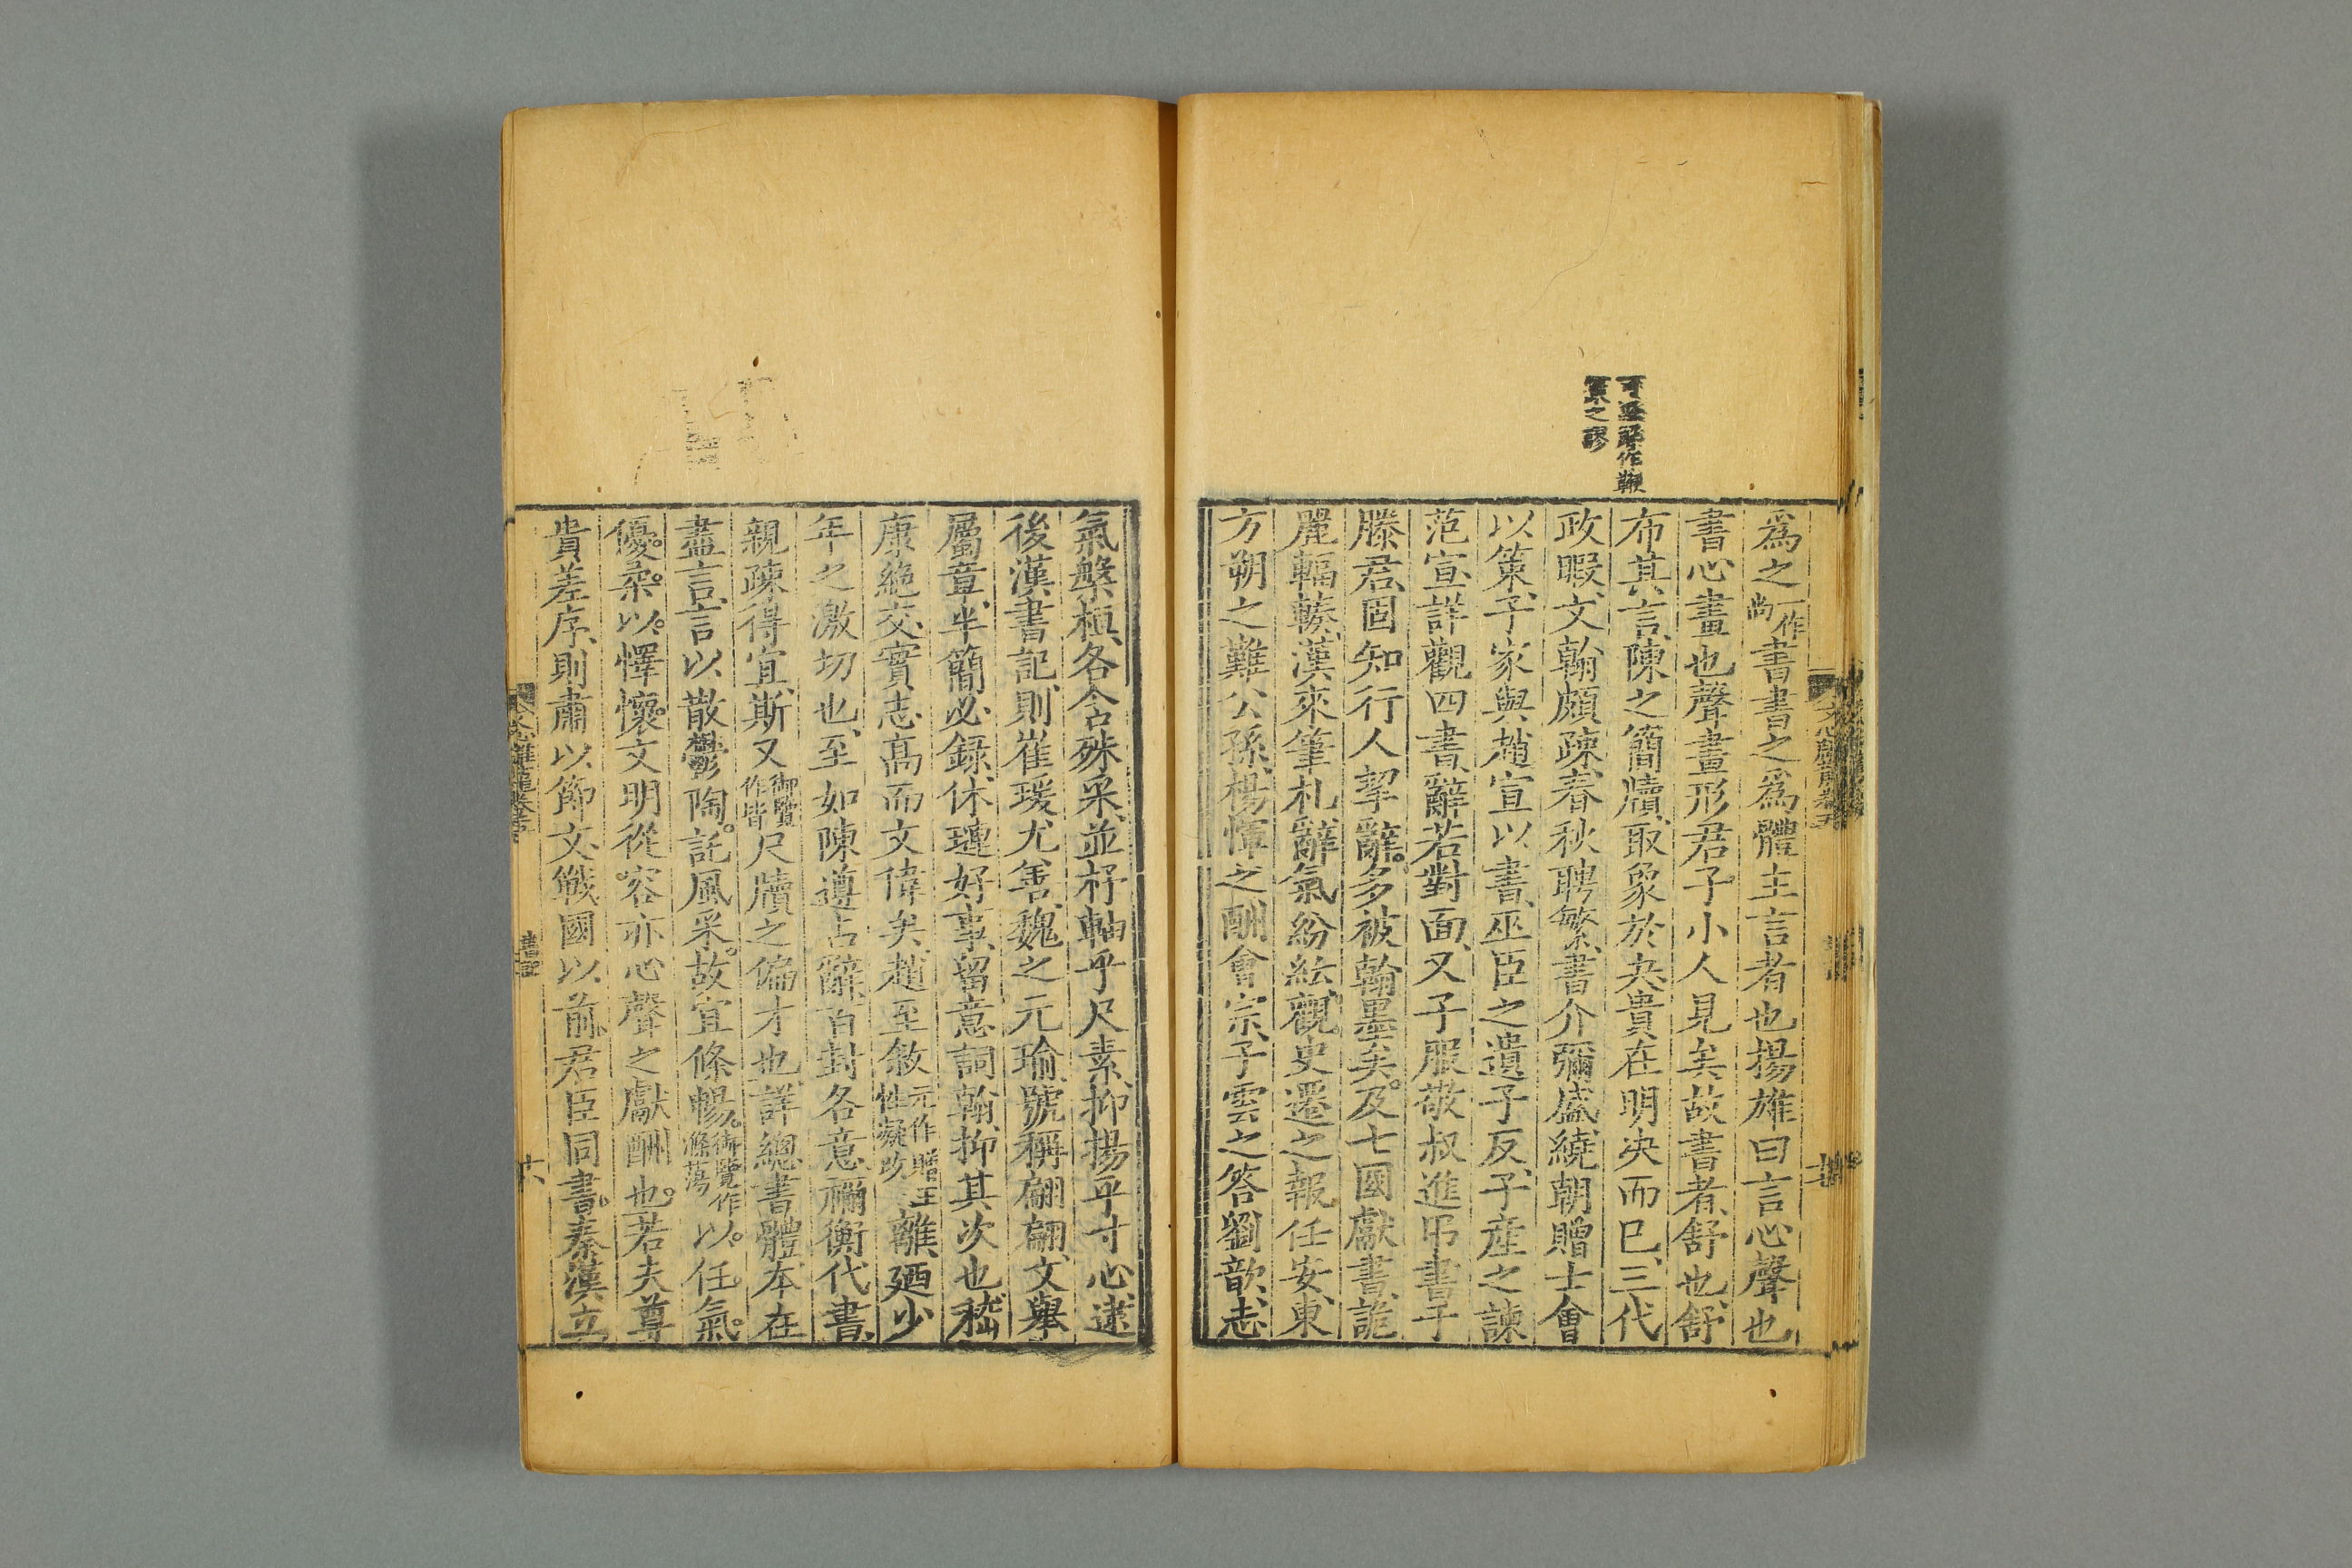 爲之一作尚書書之爲體主言者也揚雄曰言心聲也
書心畫也聲畫形君子小人見矣故書者舒也舒
布其言陳之簡牘取象於夬貴在明決而已三代
政暇文翰頗疎春秋聘繁書介彌盛繞朝贈士會
以策子家與趙宣以書巫臣之遺子反子産之諫
范宣詳觀四書辭若對面又子服敬叔進弔書于
滕君固知行人挈辭多被翰墨矣及七國獻書詭
麗輻輳漢來筆札辭氣紛紜觀史遷之報任安東
方朔之難公孫楊惲之酬會宗子雲之答劉歆志
氣槃桓各含殊采並杼軸乎尺素抑揚乎寸心逮
後漢書記則崔瑗尤善魏之元瑜號稱翩翩文舉
屬章半簡必録休璉好事留意詞翰抑其次也嵇
康絶交實志高而文偉矣趙至敘元作贈王性凝改離廼少
年之激切也至如陳遵占辭百封各意禰衡代書
親疎得宜斯又御覽作皆尺牘之偏才也詳總書體本在
盡言言以散鬱陶託風采故宜條暢御覽作滌蕩以任氣
優柔以懌懷文明從容亦心聲之獻酬也若夫尊
貴差序則肅以節文戰國以前君臣同書秦漢立
十六